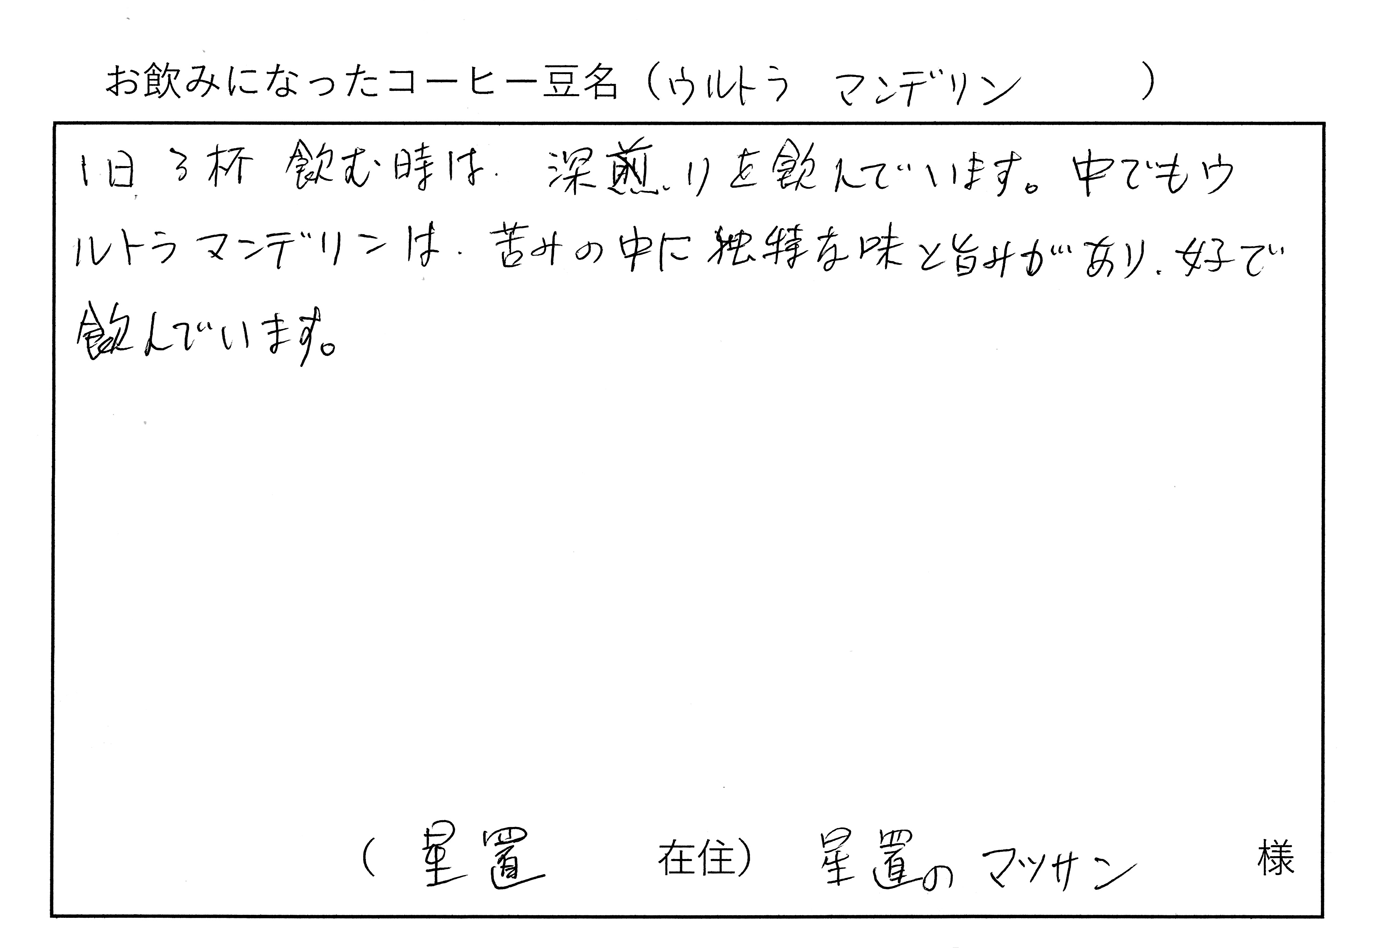 お飲みになったコーヒー豆名（ウルトラ マンデリン ）
1日3杯 飲む時は、深煎りを飲んでいます。中でもウ
ルトラマンデリンは、苦みの中に独特な味と旨みがあり、好で
飲んでいます。
（ 星置 在住） 星置の マッサン 様